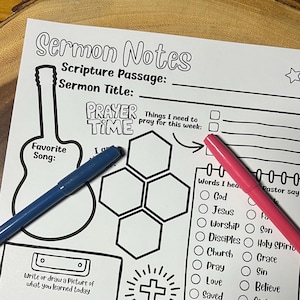 Sermon Notes
Scripture Passage:
Sermon Title:
PRAYER
TIME
Things I need to
pray for this week:
Favorite
Song:
Words I hear
Pastor say
God
Jesus
Worship
Disciples
Church
Pray
Love
Saved
Son
Holy Spirit
Grace
Sin
Believe
Write or draw a Picture of
what you learned today